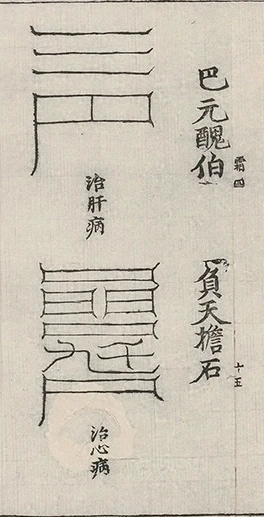 巴元醜伯
霜四
治肝病
負天擔石
十五
治心病